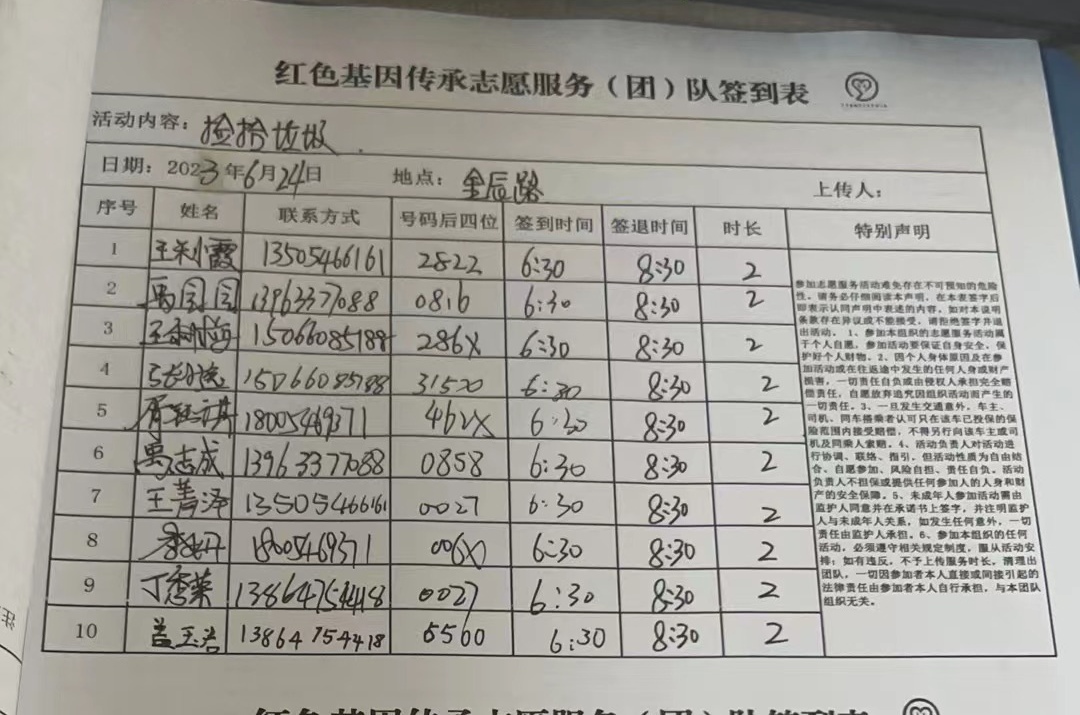 红色基因传承志愿服务（团）队签到表
活动内容：捡拾垃圾
日期：2023年6月24日 地点：金辰路 上传人：
序号 姓名 联系方式 号码后四位 签到时间 签退时间 时长 特别声明
1 王彩霞 13505466161 2822 6:30 8:30 2
2 13963377088 0816 6:30 8:30 2
3 15066085188 286X 6:30 8:30 2
4 15066085188 6:30 8:30 2
5 18005469371 462X 6:30 8:30 2
6 禹志成 13963377088 0858 6:30 8:30 2
7 王菁泽 13505466161 0027 6:30 8:30 2
8 18005469371 006X 6:30 8:30 2
9 丁秀荣 13864754418 0027 6:30 8:30 2
10 盖玉浩 13864754418 5560 6:30 8:30 2
参加志愿服务活动难免存在不可预知的危险
性，请务必仔细阅读本声明，在本表签字后
即表示认同声明中表述的内容，如对本说明
条款存在异议或不能接受，请拒绝签字并退
出活动。1、参加本组织的志愿服务活动属
于个人自愿，参加活动要保证自身安全，保
护好个人财物。2、因个人身体原因及在参
加活动或在往返途中发生的任何人身或财产
损害，一切责任自负或由侵权人承担完全赔
偿责任，自愿放弃追究因组织活动而产生的
一切责任。3、一旦发生交通意外，车主、
司机、同车搭乘者认可只在该车已投保的保
险范围内接受赔偿，不得另行向该车主或司
机及同乘人索赔。4、活动负责人对活动进
行协调、联络、指引，但活动性质为自由结
合、自愿参加、风险自担、责任自负。活动
负责人不担保或提供任何参加人的人身和财
产的安全保障。5、未成年人参加活动需由
监护人同意并在承诺书上签字，并注明监护
人与未成年人关系，如发生任何意外，一切
责任由监护人承担。6、参加本组织的任何
活动，必须遵守相关规定制度，服从活动安
排；如有违反，不予上传服务时长，清理出
团队，一切因参加者本人直接或间接引起的
法律责任由参加者本人自行承担，与本团队
组织无关。
红色基因传承志愿服务（团）队签到表